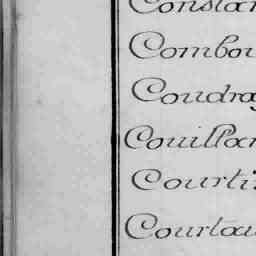 Constan
Combou
Coudray
Couillar
Courti
Courtau